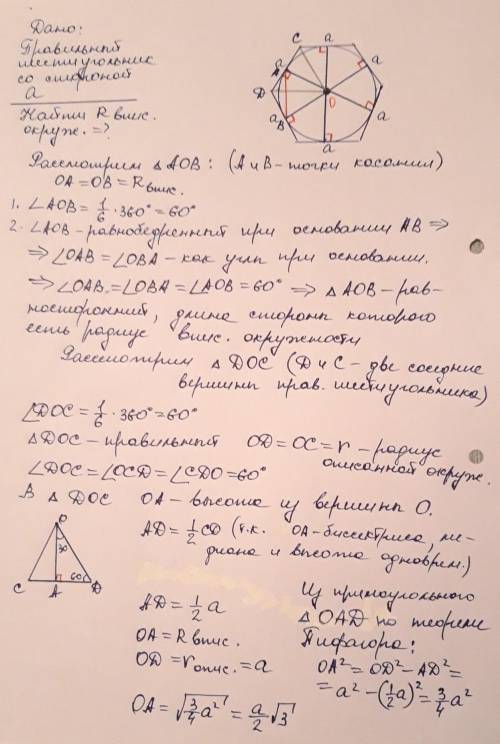 Дано:
Правильный
шестиугольник
со стороной
a
Найти R впис.
окруж. = ?
C a
a a
A
D O
a B a
a
Рассмотрим △ AOB: (A и B – точки касания)
OA = OB = R впис.
1. ∠AOB = 1/6 · 360° = 60°
2. ∠AOB – равнобедренный при основании AB ⇒
⇒ ∠OAB = ∠OBA – как углы при основании.
⇒ ∠OAB = ∠OBA = ∠AOB = 60° ⇒ △ AOB – рав-
носторонний, длина стороны которого
есть радиус впис. окружности
Рассмотрим △ DOC (D и C – две соседние
вершины прав. шестиугольника)
∠DOC = 1/6 · 360° = 60°
△DOC – правильный OD = OC = r – радиус
описанной окруж.
∠DOC = ∠OCD = ∠CDO = 60°
В △ DOC OA – высота из вершины O.
AD = 1/2 CD (т.к. OA – биссектриса, ме-
диана и высота одноврем.)
O
30
60
C A D
AD = 1/2 a
OA = R впис.
OD = r опис. = a
OA = √(3/4 a²) = a/2 √3
Из прямоугольного
△ OAD по теореме
Пифагора:
OA² = OD² – AD² =
= a² – (1/2 a)² = 3/4 a²